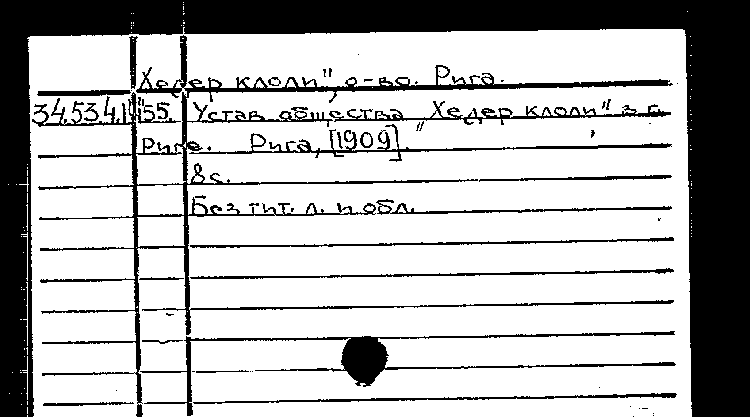 Хедер клоли", о-во. Рига.
34.53.4.1 55. Устав общества "Хедер клоли" в г.
Риге. Рига, [1909].
8 с.
Без тит. л. и обл.